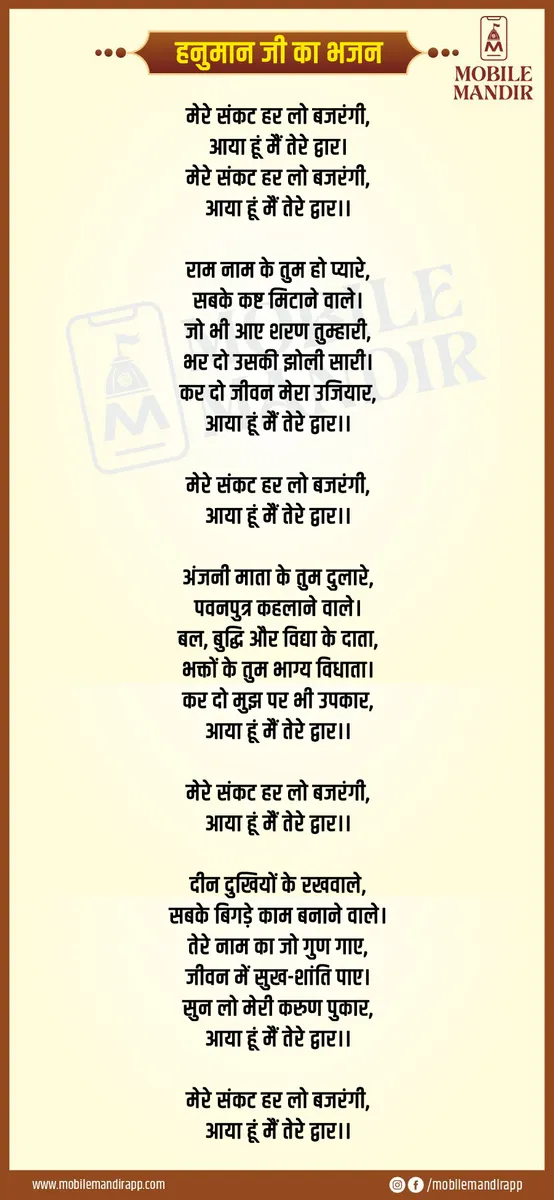 हनुमान जी का भजन
MOBILE
MANDIR
मेरे संकट हर लो बजरंगी,
आया हूं मैं तेरे द्वार।
मेरे संकट हर लो बजरंगी,
आया हूं मैं तेरे द्वार।।
राम नाम के तुम हो प्यारे,
सबके कष्ट मिटाने वाले।
जो भी आए शरण तुम्हारी,
भर दो उसकी झोली सारी।
कर दो जीवन मेरा उजियार,
आया हूं मैं तेरे द्वार।।
मेरे संकट हर लो बजरंगी,
आया हूं मैं तेरे द्वार।।
अंजनी माता के तुम दुलारे,
पवनपुत्र कहलाने वाले।
बल, बुद्धि और विद्या के दाता,
भक्तों के तुम भाग्य विधाता।
कर दो मुझ पर भी उपकार,
आया हूं मैं तेरे द्वार।।
मेरे संकट हर लो बजरंगी,
आया हूं मैं तेरे द्वार।।
दीन दुखियों के रखवाले,
सबके बिगड़े काम बनाने वाले।
तेरे नाम का जो गुण गाए,
जीवन में सुख-शांति पाए।
सुन लो मेरी करुण पुकार,
आया हूं मैं तेरे द्वार।।
मेरे संकट हर लो बजरंगी,
आया हूं मैं तेरे द्वार।।
MOBILE
MANDIR
www.mobilemandirapp.com
/mobilemandirapp